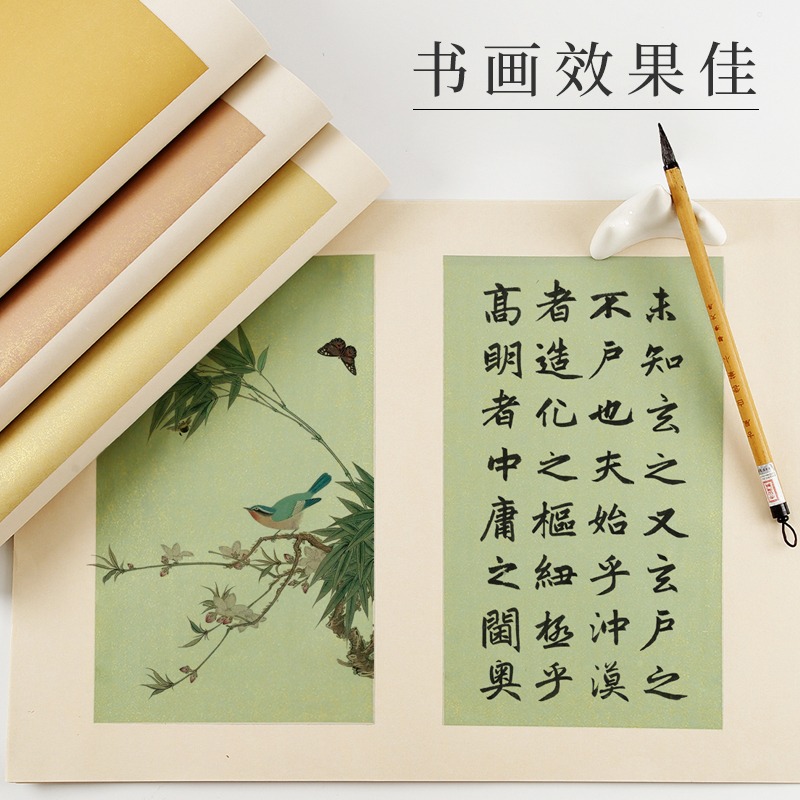 书画效果佳
未知玄之又玄户之
不户也夫始乎沖漠
者造化之樞紐極乎
高明者中庸之閫奥